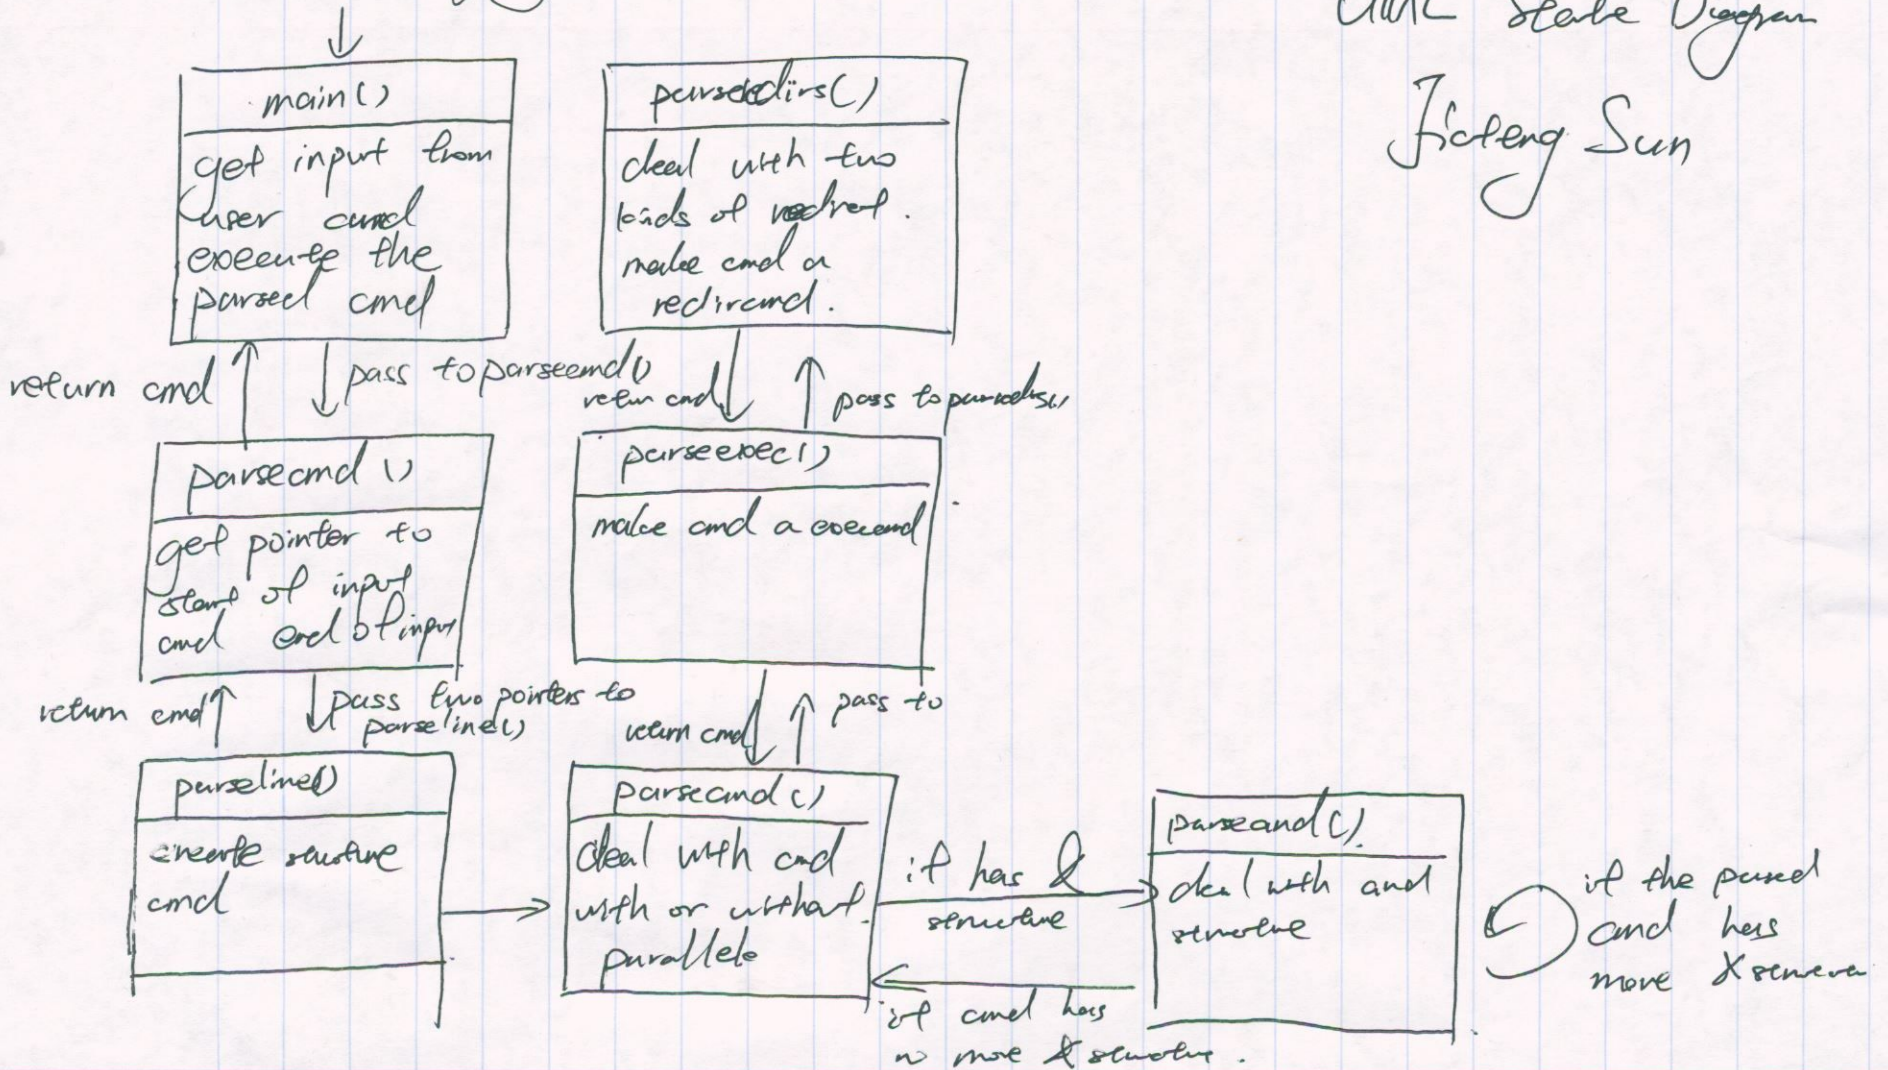 UML State Diagram
Sun
main()
get input from
user cmd
execute the
parsed cmd
parseredirs()
deal with two
kinds of redirect.
make cmd a
redircmd.
return cmd
pass to parsecmd()
return cmd
pass to
parsecmd()
get pointer to
start of input
and end of input
parseexec()
make cmd a execcmd
return cmd
pass two pointers to
parseline()
return cmd
pass to
parseline()
create structure
cmd
parsecmd()
deal with cmd
with or without
parallele
if has &
structure
if cmd has
no more & structure.
parseand()
deal with and
structure
if the parsed
cmd has
more &